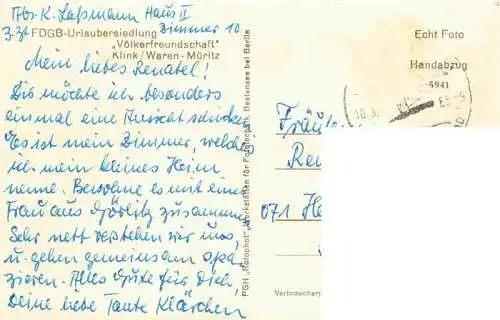 Abs. K. Laßmann Haus II
z. Zt FDGB-Urlaubersiedlung Zimmer 10
„Völkerfreundschaft"
Klink/Waren-Müritz
Mein liebes Renatel!
Dir möchte ich besonders
einmal eine Ansicht schicken
Es ist mein Zimmer, welches
ich mein kleines Heim
nenne. Bewohne es mit einer
Frau aus Görlitz zusammen
Sehr nett verstehen wir uns,
u. gehen gemeinsam spa-
zieren. Alles Gute für Dich,
Deine liebe Tante Klärchen
PGH „Rotophot" Werkstätten für Fototechnik, Bestensee bei Berlin
Echt Foto
Handabzug
5941
Fräulein
Ren
071
Verbraucher